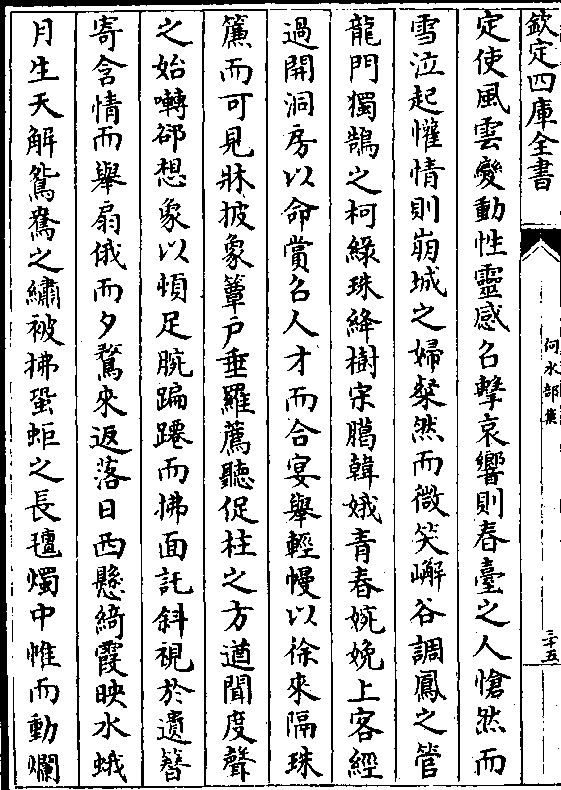 欽定四庫全書
何水部集
三十五
定使風雲變動性靈感召擊哀響則春臺之人愴然而
雪泣起懽情則崩城之婦粲然而微笑嶰谷調鳳之管
龍門獨鵠之柯綠珠絳樹宋臈韓娥青春婉娩上客經
過開洞房以命賞召人才而合宴舉輕幔以徐來隔珠
簾而可見牀披象簟戶垂羅薦聽促柱之方遒聞度聲
之始囀郤想象以煩足腕蹁躚而拂面託斜視於遺簪
寄含情而舉扇俄而夕騖來返落日西懸綺霞映水蛾
月生天解鴛鴦之繡被拂蛩蚷之長氊燭中帷而動爛